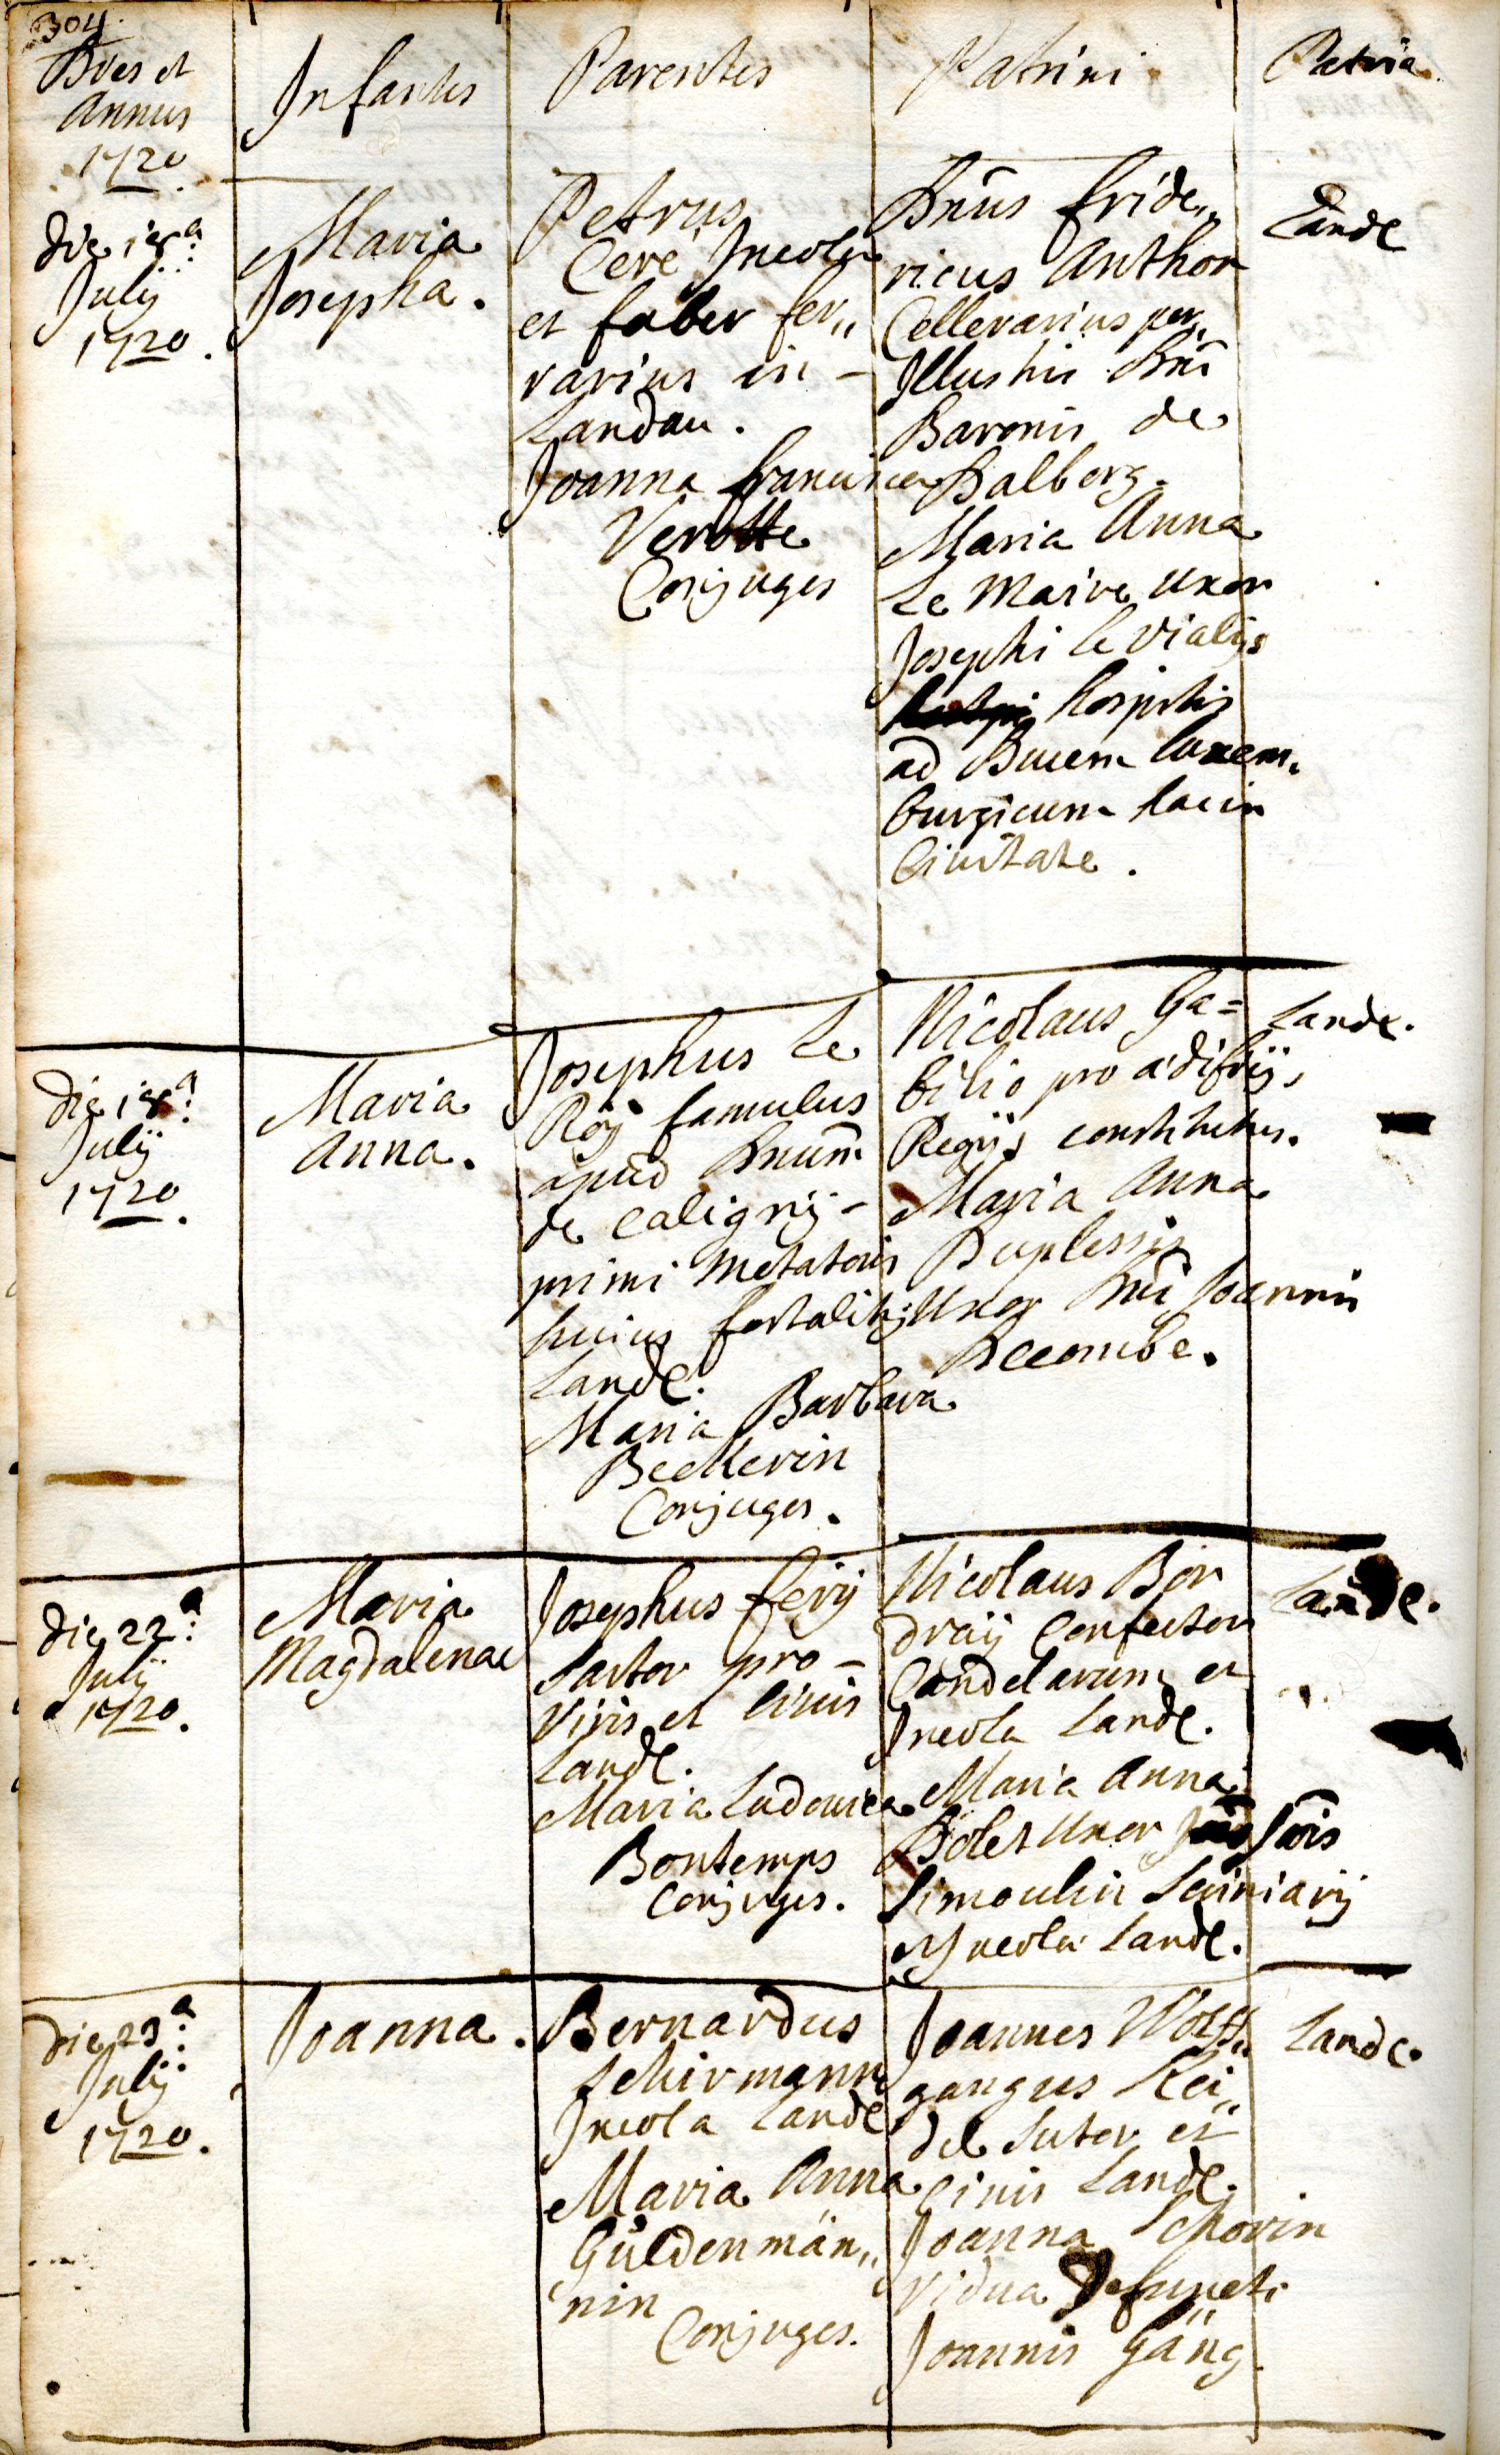 304.
Dies et
Annus
1720.
Infantes
Parentes
Patrini
Patria.
die 18ª:
Julÿ
1720.
Maria
Josepha.
Petrus
Ceré Incola
et faber fer„
rarius in -
Landau.
Joanna francisca
Verotte
Conjuges
Dn̄us fride„
ricus Anthor
Cellerarius per„
Illustris Dn̄i
Baronis de
Dalberg.
Maria Anna
Le Maire uxor
Josephi le vialijs
hospitis
ad Ducem luxem„
burgicum hac in
Civitate.
Lande
die 18ª:
Julÿ
1720.
Maria
Anna.
Josephus Le
Roÿ famulus
apud Dnum̄
de Caligny -
primi Metatoris
huius fortalitij
Lande.
Maria Barbara
Beckerin
Conjuges.
Nicolaus Ga=
bilio pro ædificijs
Regijs constitutus.
Maria Anna
Duplessis
Uxor Dn̄i Joannis
Decombe.
Lande.
die 22ª:
Julÿ
1720.
Maria
Magdalenae
Josephus ferÿ
Sartor pro -
viris et Civis
Lande.
Maria Ludovica
Bontemps
Conjuges.
Nicolaus Bor
draÿ Confector
Candelarum et
Incola Lande.
Maria Anna
Dolet Uxor Jōis
Simoulin Scriniarij
et Incolæ Lande.
Lande.
die 23ª:
Julÿ
1720.
Joanna.
Bernardus
schirmann
Incola Lande
Maria Anna
Güldenmän„
nin
Conjuges.
Joannes Wolff„
gangus Kei„
del Sutor et
Civis Lande.
Joanna schorin
vidua Defuncti
Joannis Gäng.
Lande.